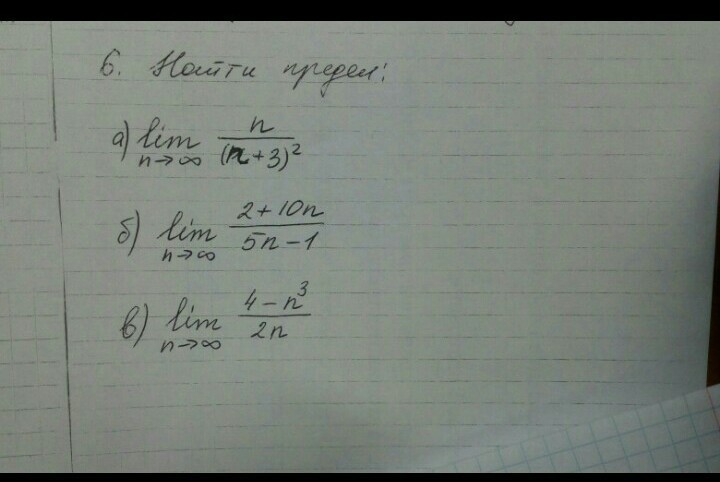 6. Найти предел:
а) lim n→∞ n/(n+3)²
б) lim n→∞ (2+10n)/(5n−1)
в) lim n→∞ (4−n³)/(2n)